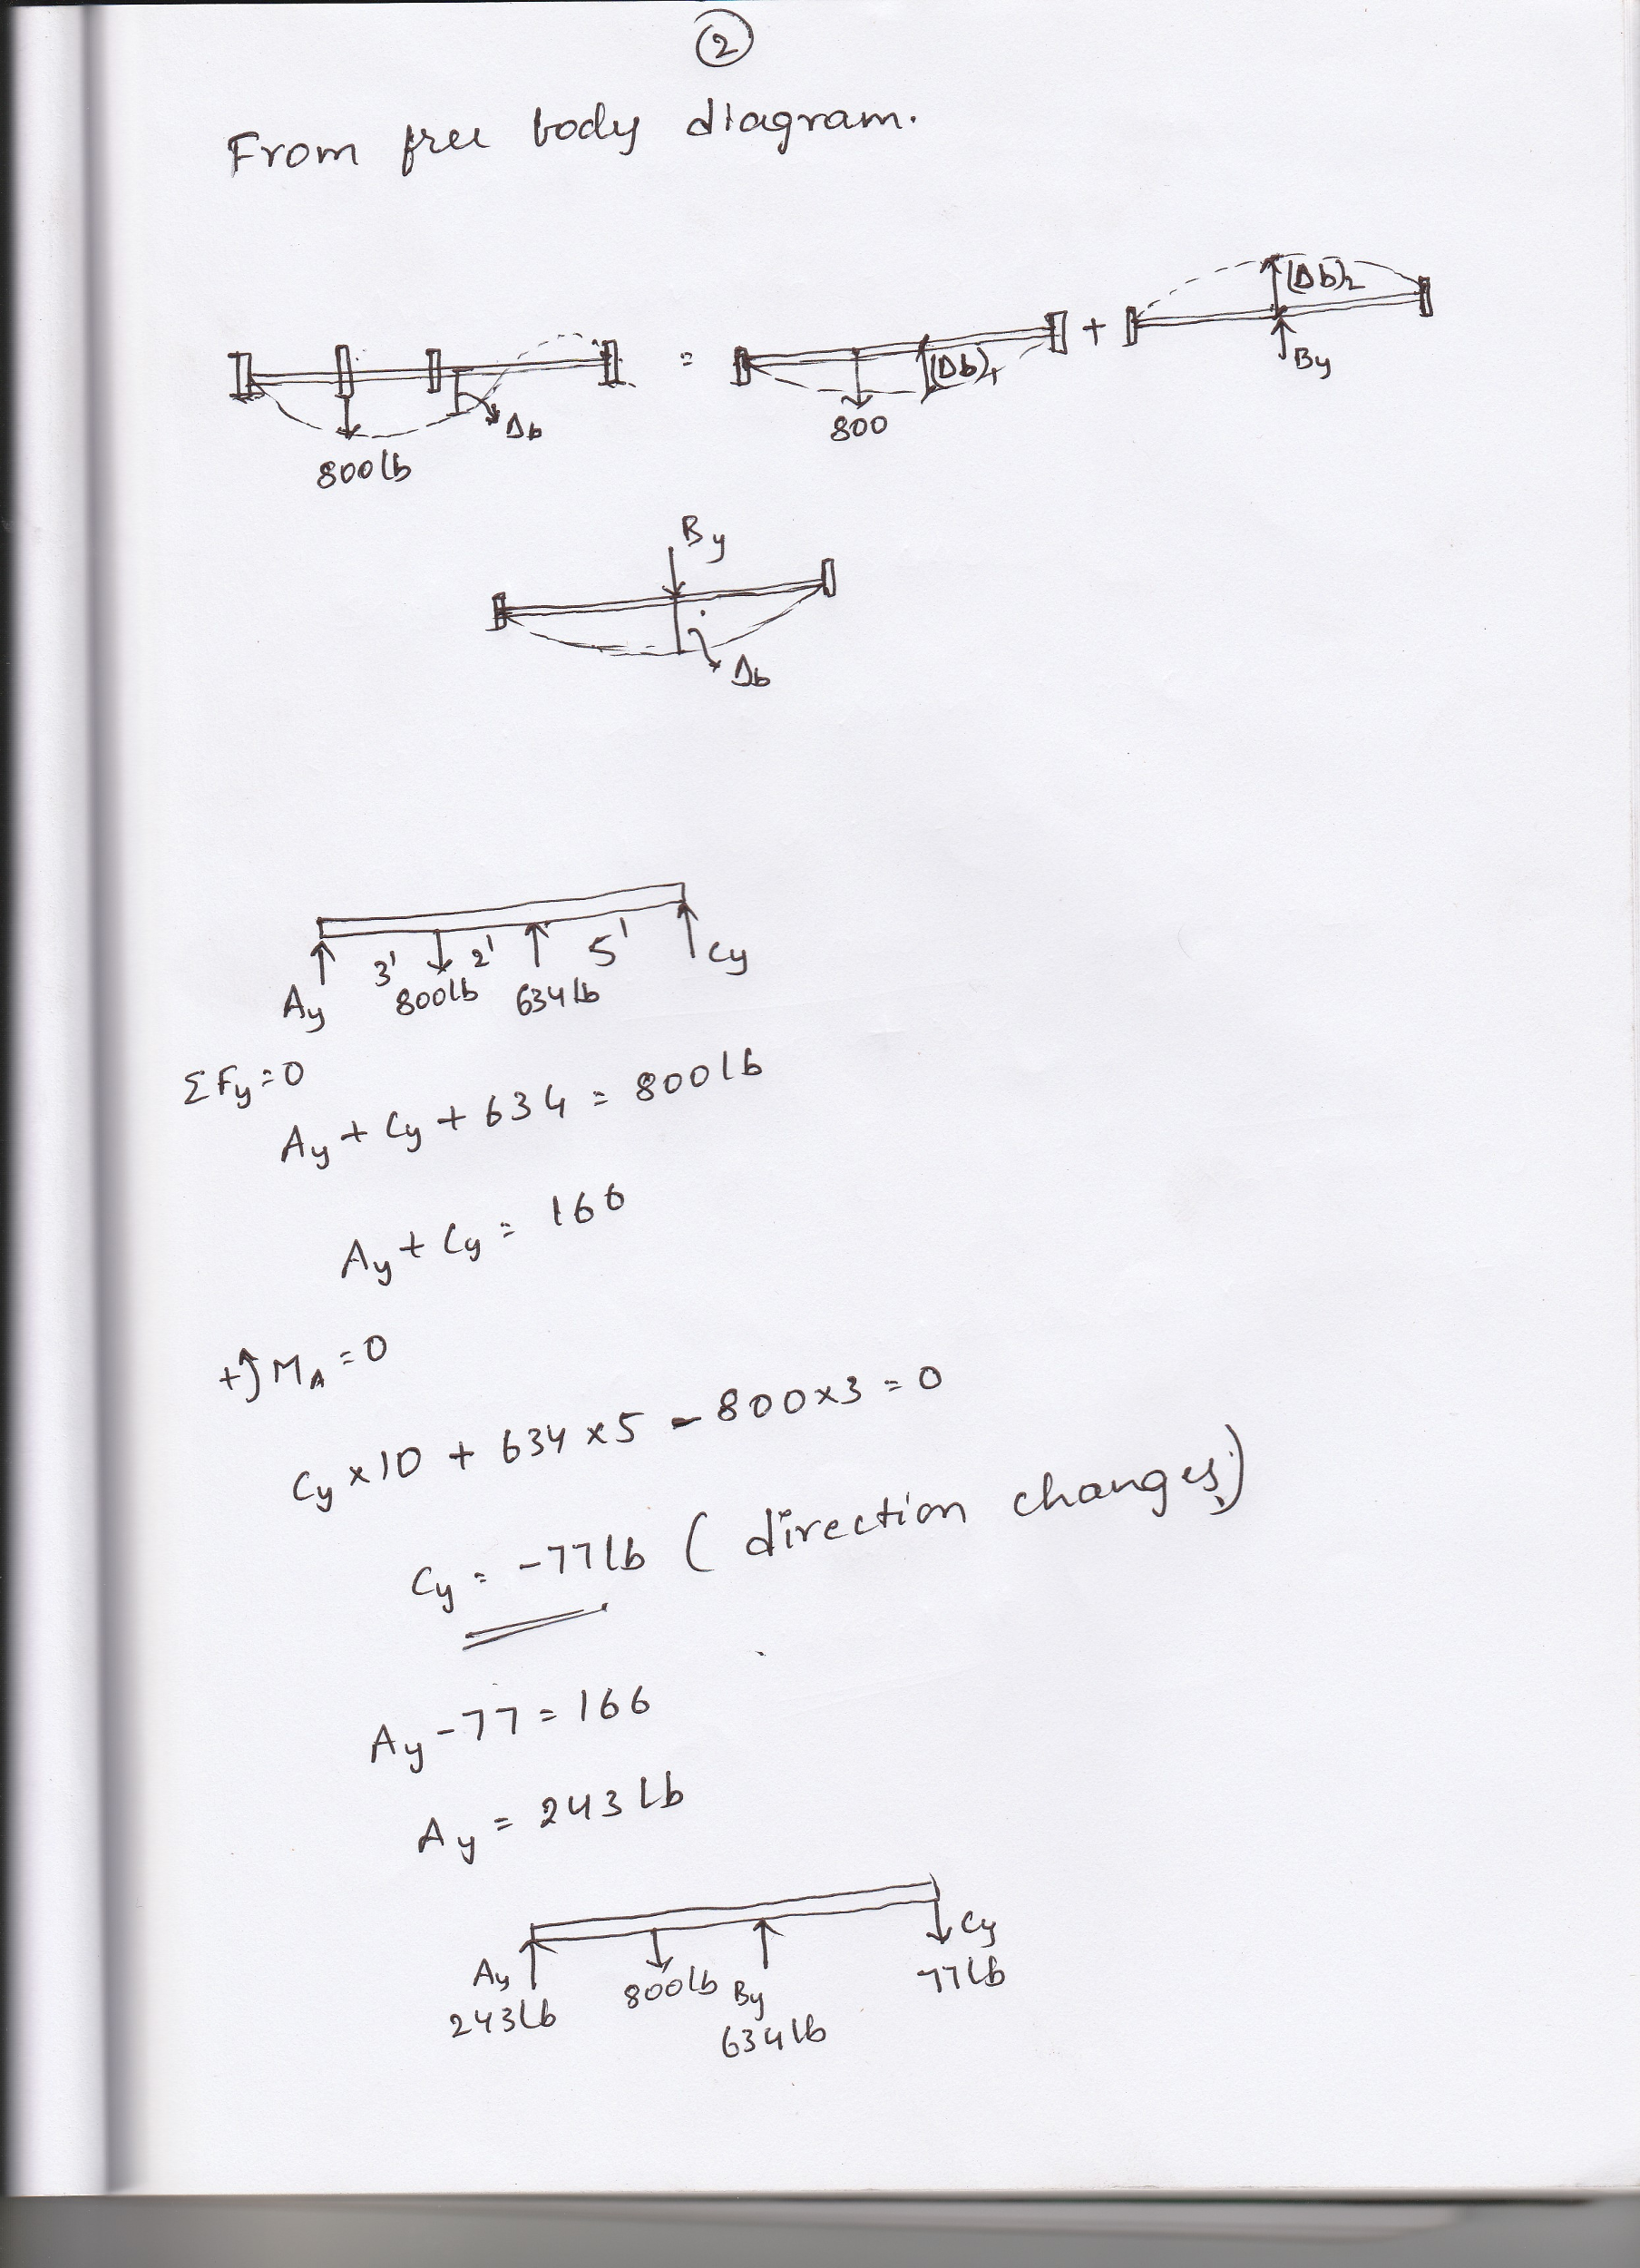 2
From free body diagram.
800 lb
Δb
=
800
(Δb)1
+
(Δb)2
By
By
Δb
Ay 3' 800lb 2' 634 lb 5' Cy
ΣFy = 0
Ay + Cy + 634 = 800 lb
Ay + Cy = 166
+↺ MA = 0
Cy × 10 + 634 × 5 - 800×3 = 0
Cy = -77 lb ( direction changes)
Ay - 77 = 166
Ay = 243 lb
Ay
243 lb
800lb
By
634 lb
Cy
77 lb